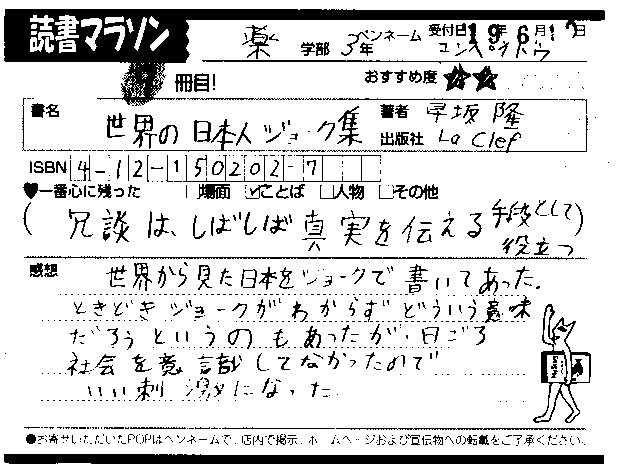 読書マラソン
薬 学部 3年 ペンネーム 受付日19年6月1 日
冊目!
おすすめ度 ☆☆
書名 世界の日本人ジョーク集
著者 早坂 隆
出版社 La Clef
ISBN 4-12-150202-7
♥一番心に残った □場面 ☑ことば □人物 □その他
(冗談は、しばしば真実を伝える手段として役立つ)
感想 世界から見た日本をジョークで書いてあった。
ときどきジョークがわからずどういう意味
だろうというのもあったが、日ごろ
社会を意識してなかったので
いい刺激になった
●お寄せいただいたPOPはペンネームで、店内で掲示、ホームページおよび宣伝物への転載をご了承ください。